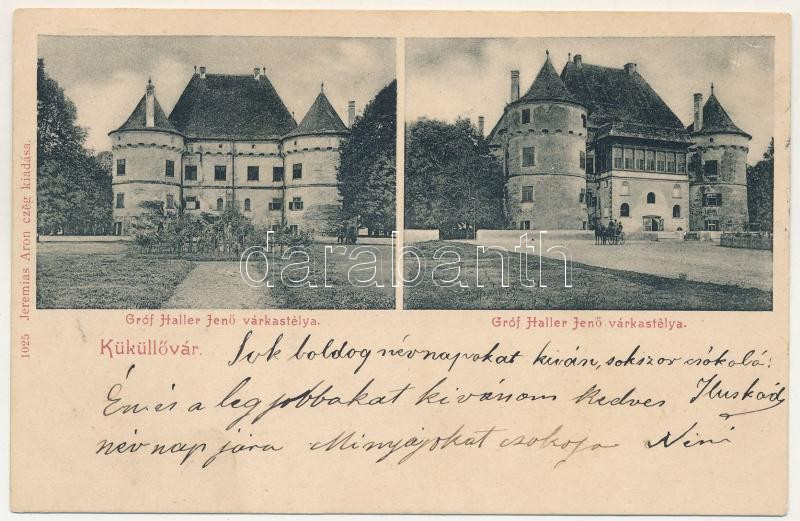 1025 Jeremias Aron czég kiadása.
darabanth
Gróf Haller Jenő várkastélya.
Gróf Haller Jenő várkastélya.
Küküllővár.
Sok boldog névnapokat kiván, sokszor csókolá:
Iluskád
Én és a legjobbakat kivánom kedves
név nap jára Minyájokat csokoja Néni